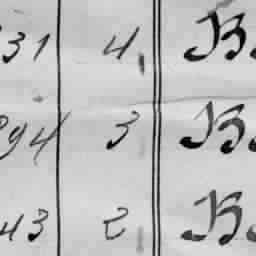 31 4 B.
94 3 B
43 2 B.